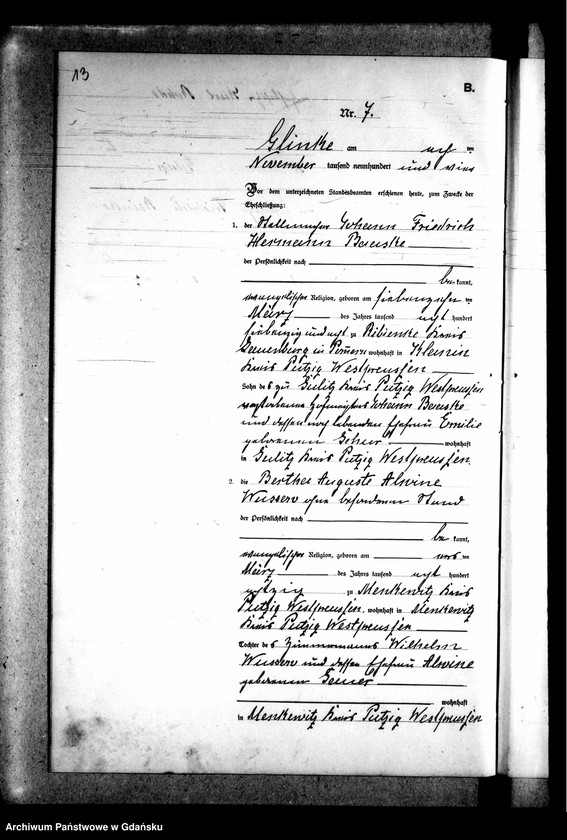 13
B.
Nr. 7.
Glinke am acht ten
November tausend neunhundert und vier
Vor dem unterzeichneten Standesbeamten erschienen heute, zum Zwecke der
Eheschließung:
1. der Johann Friedrich
Hermann
der Persönlichkeit nach
be kannt,
evangelischer Religion, geboren am siebenzehn ten
März des Jahres tausend acht hundert
siebenzig und acht zu Ribienke Kreis
Lauenburg in Pommern wohnhaft in Kleinin
Kreis Putzig Westpreussen
Sohn des zu Kreis Putzig Westpreussen
verstorbenen Johann
und dessen noch lebenden Ehefrau Emilie
geborenen wohnhaft
in Kreis Putzig Westpreussen.
2. die Bertha Auguste Alwine
ohne besonderen Stand
der Persönlichkeit nach
be kannt,
evangelischer Religion, geboren am ten
März des Jahres tausend acht hundert
achtzig zu Menkewitz Kreis
Putzig Westpreussen, wohnhaft in Menkewitz
Kreis Putzig Westpreussen
Tochter des Zimmermanns Wilhelm
und dessen Ehefrau Alwine
geborenen
wohnhaft
in Menkewitz Kreis Putzig Westpreussen
Archiwum Państwowe w Gdańsku